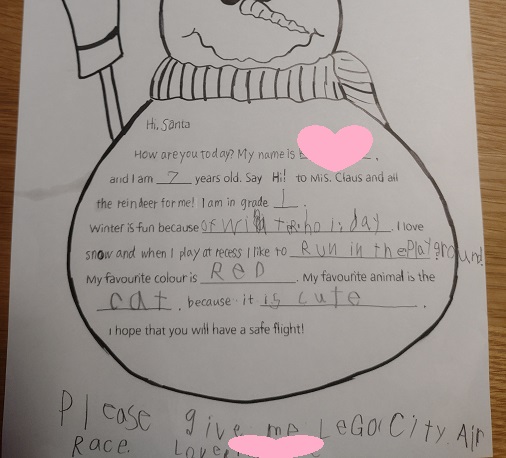 Hi, Santa
How are you today? My name is
and I am 7 years old. Say Hi! to Mrs. Claus and all
the reindeer for me! I am in grade 1.
Winter is fun because of holiday. I love
snow and when I play at recess I like to Run in the Playground!
My favourite colour is RED. My favourite animal is the
cat, because it is cute.
I hope that you will have a safe flight!
Please give me LeGo City Air
Race. Love,